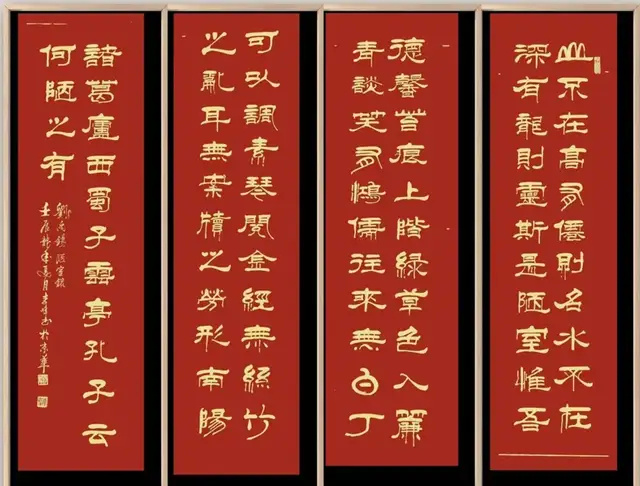 山不在高有僊則名水不在
深有龍則靈斯是陋室惟吾
德馨苔痕上階綠草色入簾
青談笑有鴻儒往來無白丁
可以調素琴閱金經無絲竹
之亂耳無案牘之勞形南陽
諸葛廬西蜀子雲亭孔子云
何陋之有
劉禹錫陋室銘
壬辰